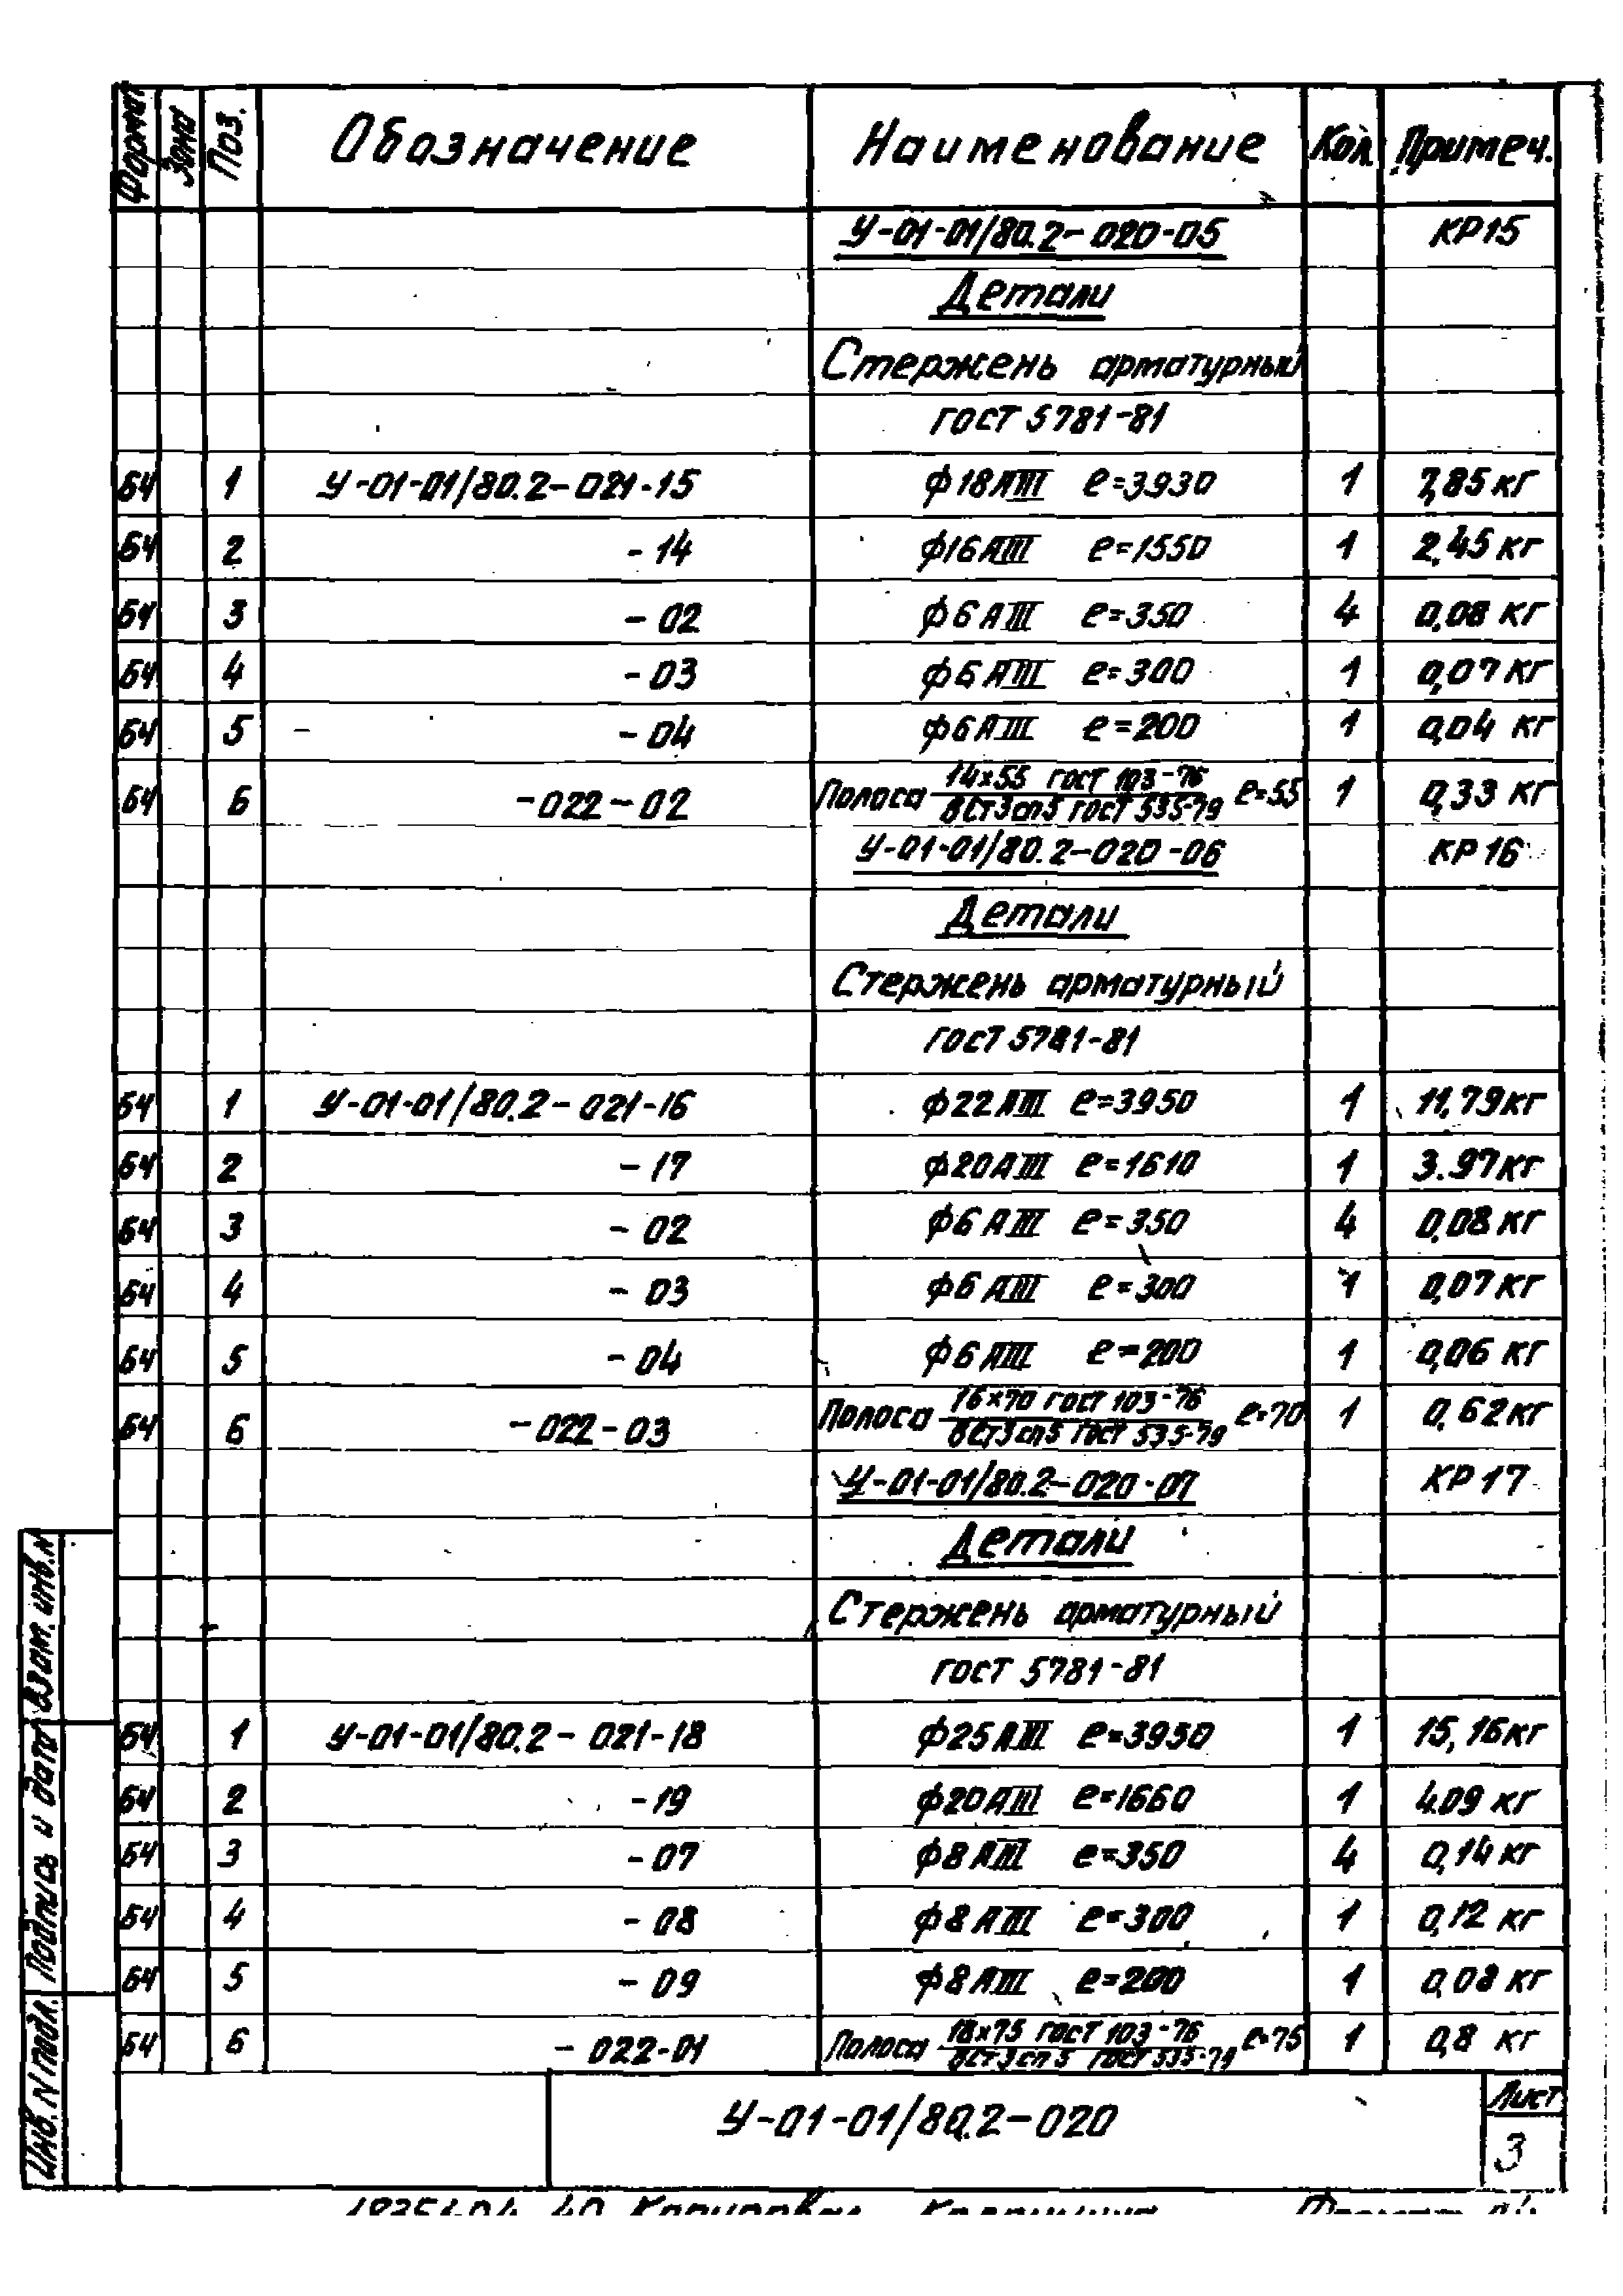 Формат Зона Поз. Обозначение Наименование Кол. Примеч.
У-01-01/80.2-020-05 КР15
Детали
Стержень арматурный
ГОСТ 5781-81
БЧ 1 У-01-01/80.2-021-15 ф18АIII ℓ=3930 1 7,85 кг
БЧ 2 -14 ф16АIII ℓ=1550 1 2,45 кг
БЧ 3 -02 ф6АIII ℓ=350 4 0,08 кг
БЧ 4 -03 ф6АIII ℓ=300 1 0,07 кг
БЧ 5 -04 ф6АIII ℓ=200 1 0,04 кг
БЧ 6 -022-02 Полоса 14х55 ГОСТ 103-76 / ВСт3сп5 ГОСТ 535-79 ℓ=55 1 0,33 кг
У-01-01/80.2-020-06 КР16
Детали
Стержень арматурный
ГОСТ 5781-81
БЧ 1 У-01-01/80.2-021-16 ф22АIII ℓ=3950 1 11,79кг
БЧ 2 -17 ф20АIII ℓ=1610 1 3.97кг
БЧ 3 -02 ф6АIII ℓ=350 4 0,08кг
БЧ 4 -03 ф6АIII ℓ=300 1 0,07кг
БЧ 5 -04 ф6АIII ℓ=200 1 0,06 кг
БЧ 6 -022-03 Полоса 16х70 ГОСТ 103-76 / ВСт3сп5 ГОСТ 535-79 ℓ=70 1 0,62кг
У-01-01/80.2-020-07 КР17
Детали
Стержень арматурный
ГОСТ 5781-81
БЧ 1 У-01-01/80.2-021-18 ф25АIII ℓ=3950 1 15,16кг
БЧ 2 -19 ф20АIII ℓ=1660 1 4.09 кг
БЧ 3 -07 ф8АIII ℓ=350 4 0,14кг
БЧ 4 -08 ф8АIII ℓ=300 1 0,12 кг
БЧ 5 -09 ф8АIII ℓ=200 1 0,08 кг
БЧ 6 -022-01 Полоса 18х75 ГОСТ 103-76 / ВСт3сп5 ГОСТ 535-79 ℓ=75 1 0,8 кг
У-01-01/80.2-020
Лист
3
Инв. N подл. Подпись и дата Взам. инв. N